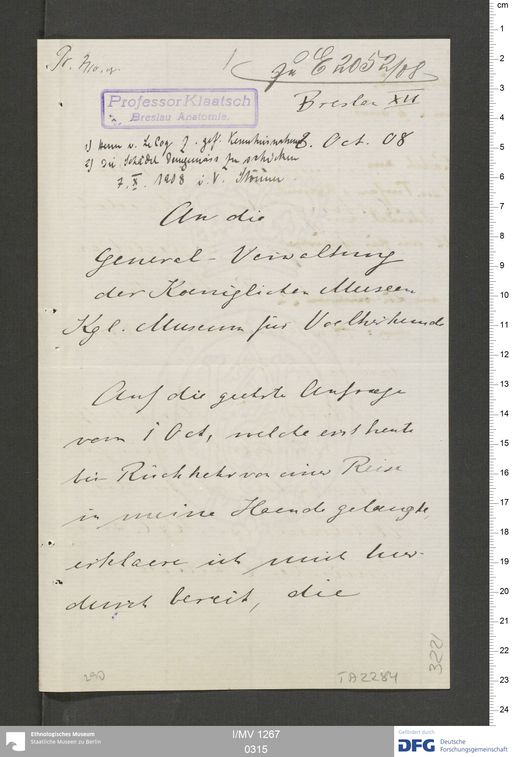 zu E 2052/08
Professor Klaatsch
Breslau Anatomie.
Breslau XII
6. Oct. 08
1) Herrn v. Le Coq z. gef. Kenntnisnahme
2) Die Schädel zu schicken
7. X. 1908 i. V.
An die
General-Verwaltung
der Koeniglichen Museen
Kgl. Museum für Voelkerkunde
Auf die geehrte Anfrage
vom 1 Oct, welche erst heute
bei Rückkehr von einer Reise
in meine Haende gelangte,
erklaere ich mich hier-
durch bereit, die
3221
290
TA2284
cm
1
2
3
4
5
6
7
8
9
10
11
12
13
14
15
16
17
18
19
20
21
22
23
24
Ethnologisches Museum
Staatliche Museen zu Berlin
I/MV 1267
0315
Gefördert durch
DFG Deutsche
Forschungsgemeinschaft